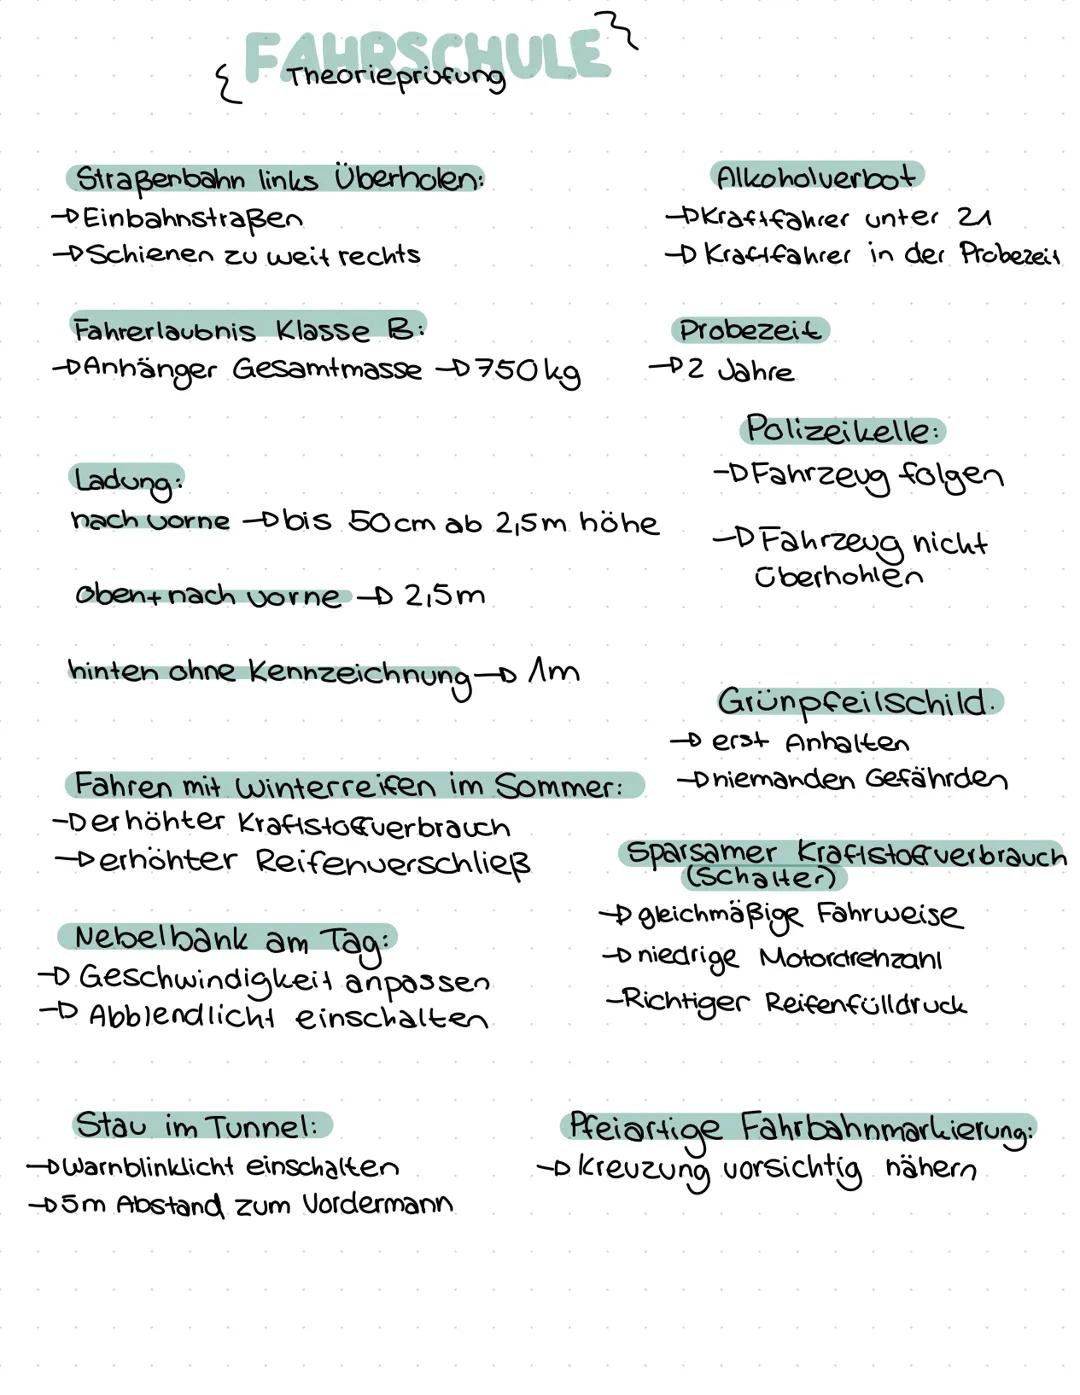 FAHRSCHULE
Theorieprüfung
Straßenbahn links Überholen:
→Einbahnstraßen
→Schienen zu weit rechts
Fahrerlaubnis Klasse B:
→Anhänger Gesamtmasse →750kg
Ladung:
nach vorne →bis 50cm ab 2,5m höhe
oben+nach vorne → 2,5m
hinten ohne Kennzeichnung→ 1m
Fahren mit Winterreifen im Sommer:
→erhöhter Kraftstoffverbrauch
→erhöhter Reifenverschließ
Nebelbank am Tag:
→ Geschwindigkeit anpassen
→ Abblendlicht einschalten
Stau im Tunnel:
→Warnblinklicht einschalten
→5m Abstand zum Vordermann
Alkoholverbot
→Kraftfahrer unter 21
→ Kraftfahrer in der Probezeit
Probezeit
→2 Jahre
Polizeikelle:
→Fahrzeug folgen
→Fahrzeug nicht
überhohlen
Grünpfeilschild.
→ erst Anhalten
→niemanden Gefährden
Sparsamer Kraftstoffverbrauch
(Schalter)
→ gleichmäßige Fahrweise
→ niedrige Motordrehzahl
-Richtiger Reifenfülldruck
Pfeiartige Fahrbahnmarkierung:
→ Kreuzung vorsichtig nähern